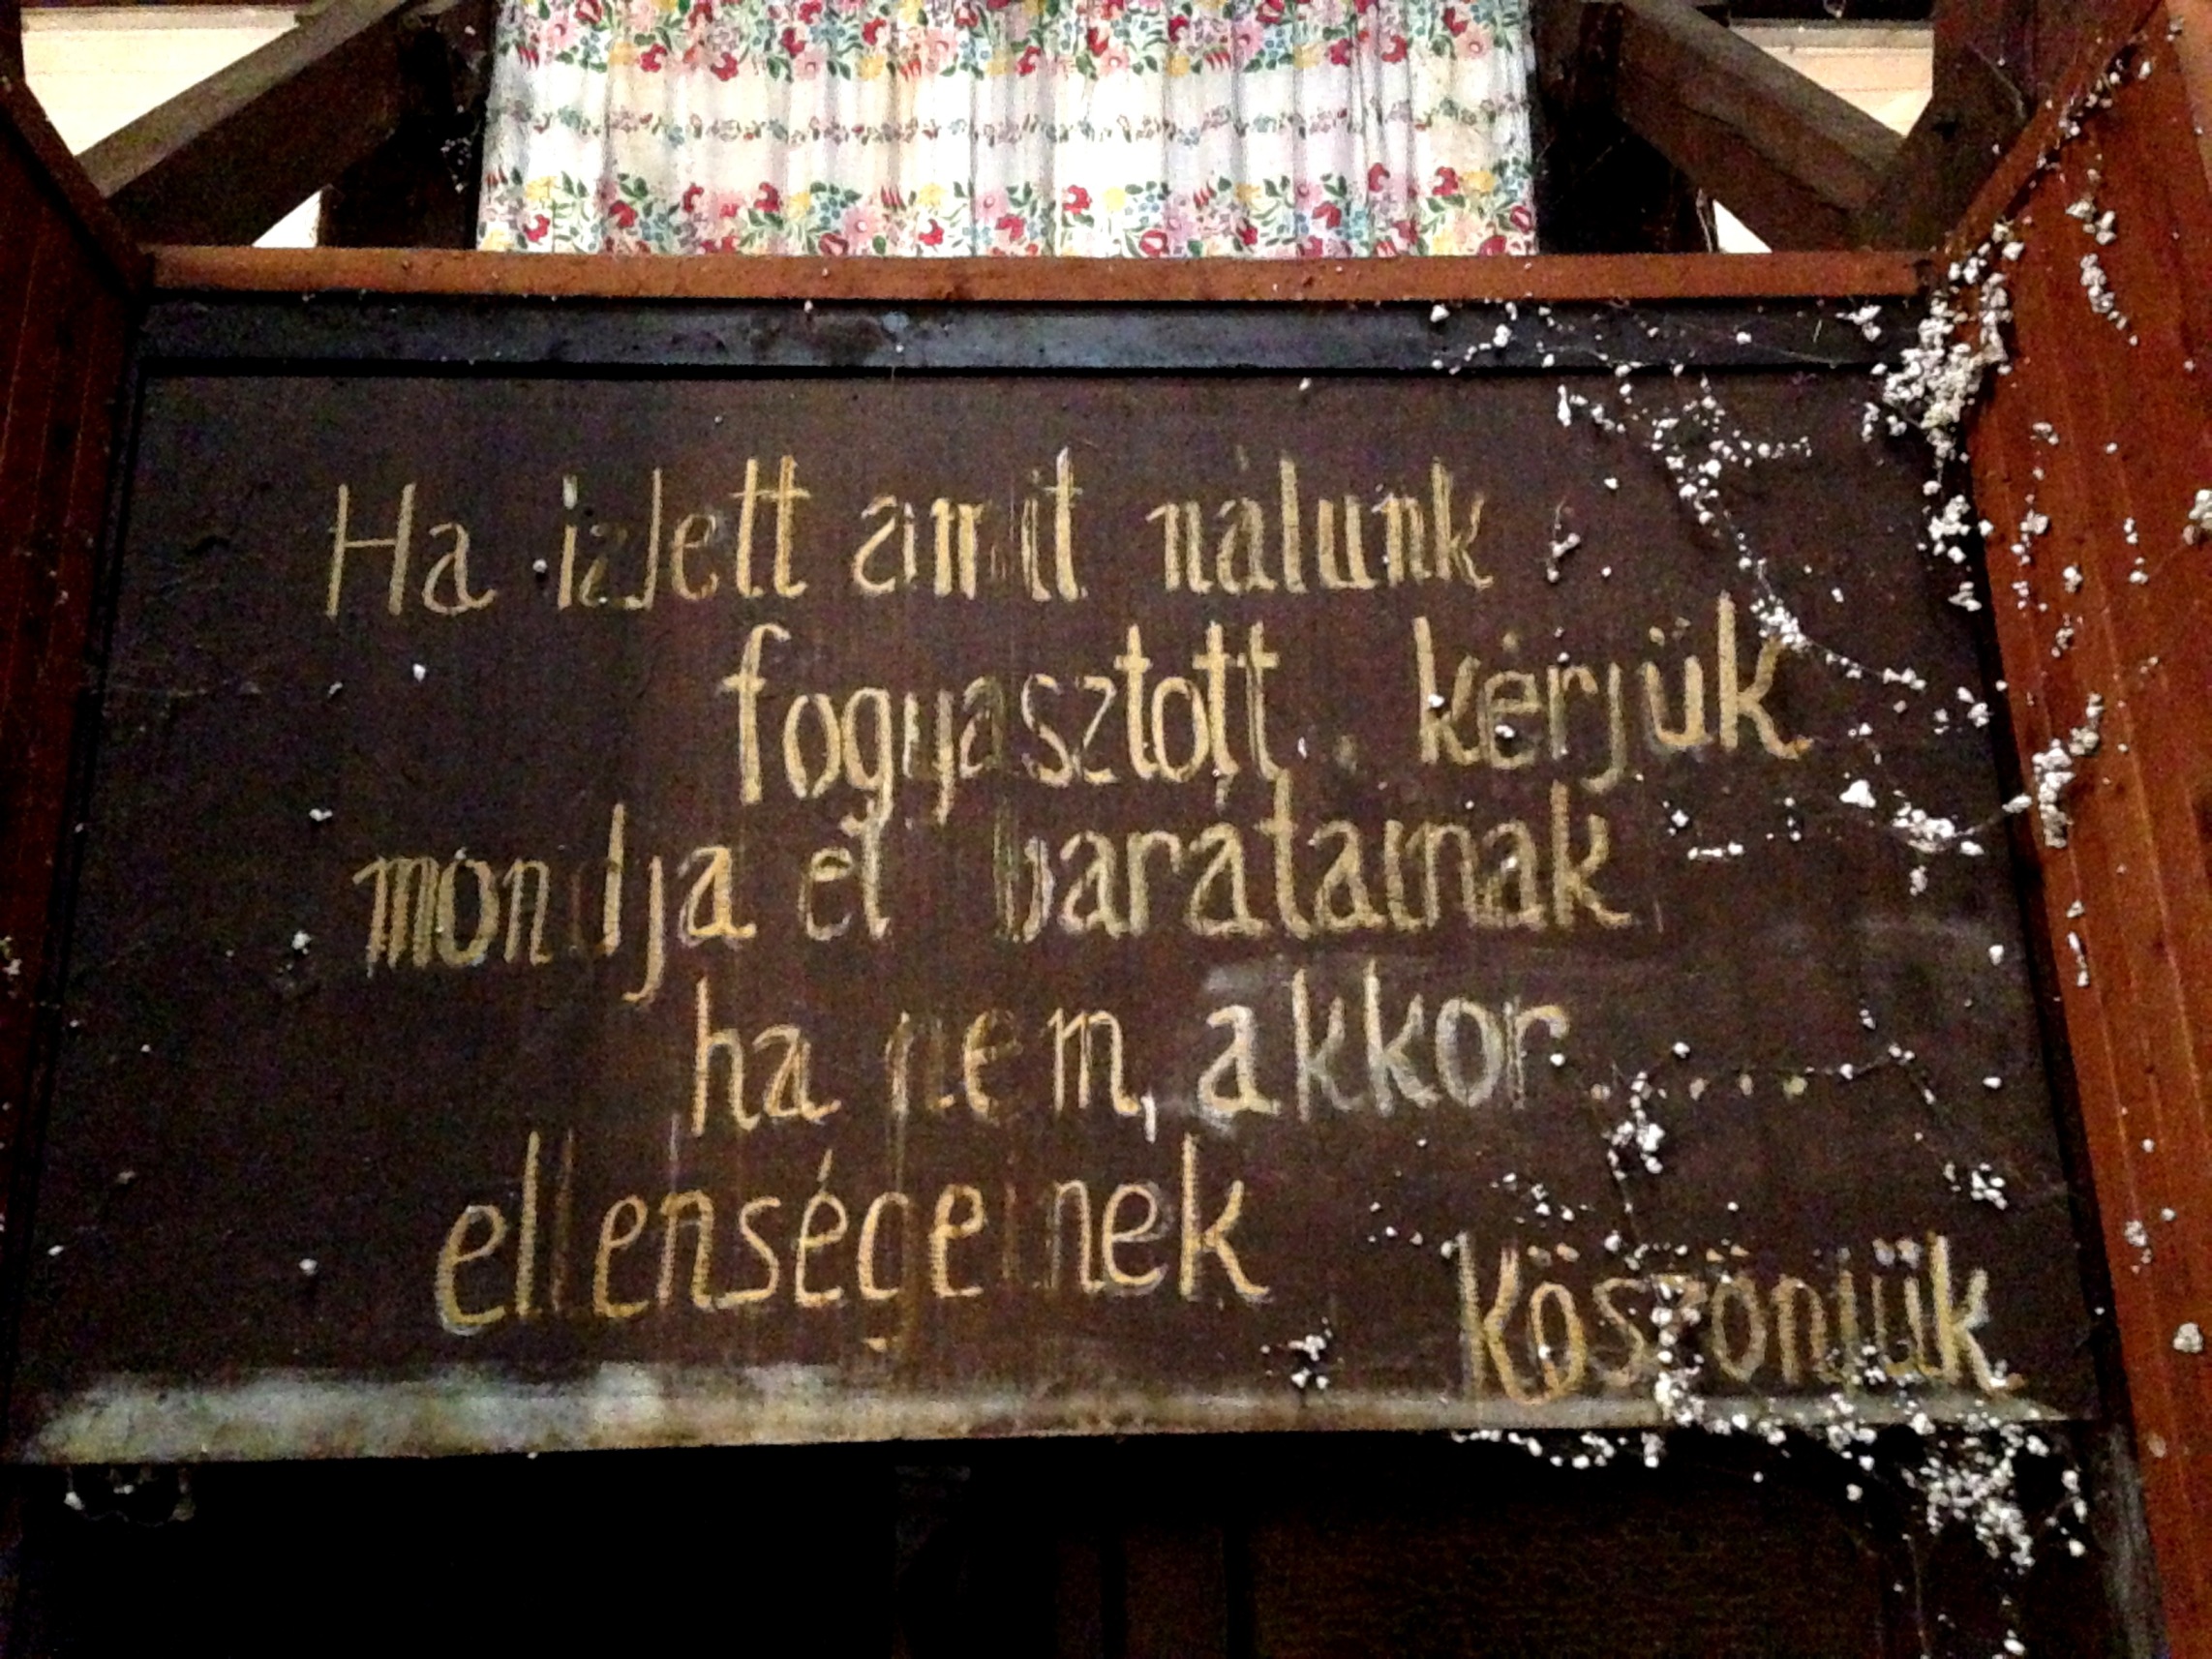 Ha izlett amit nálunk
fogyasztott, kérjük
mondja el barátainak
ha nem, akkor......
ellenségeinek
Köszönjük